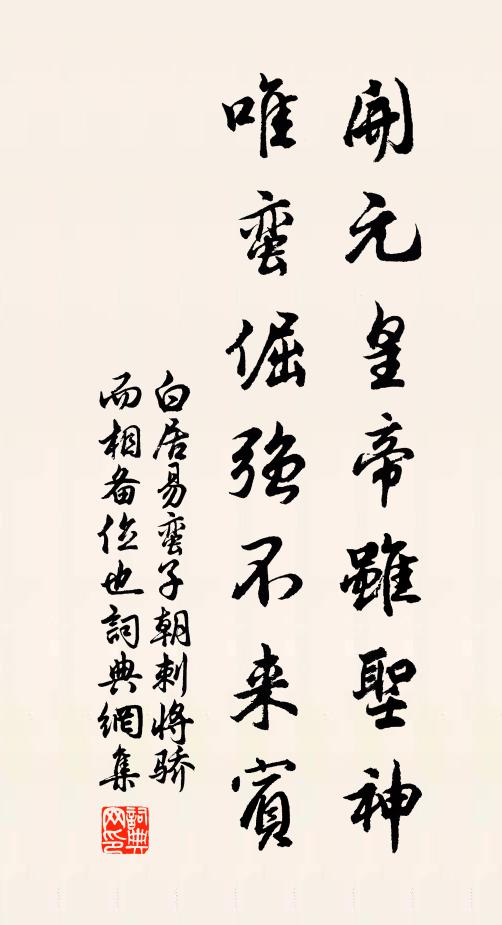 開元皇帝雖聖神
唯蛮倔強不来賓
白居易蛮子朝刺将骄
而相备位也詞典網集
詞典
网印